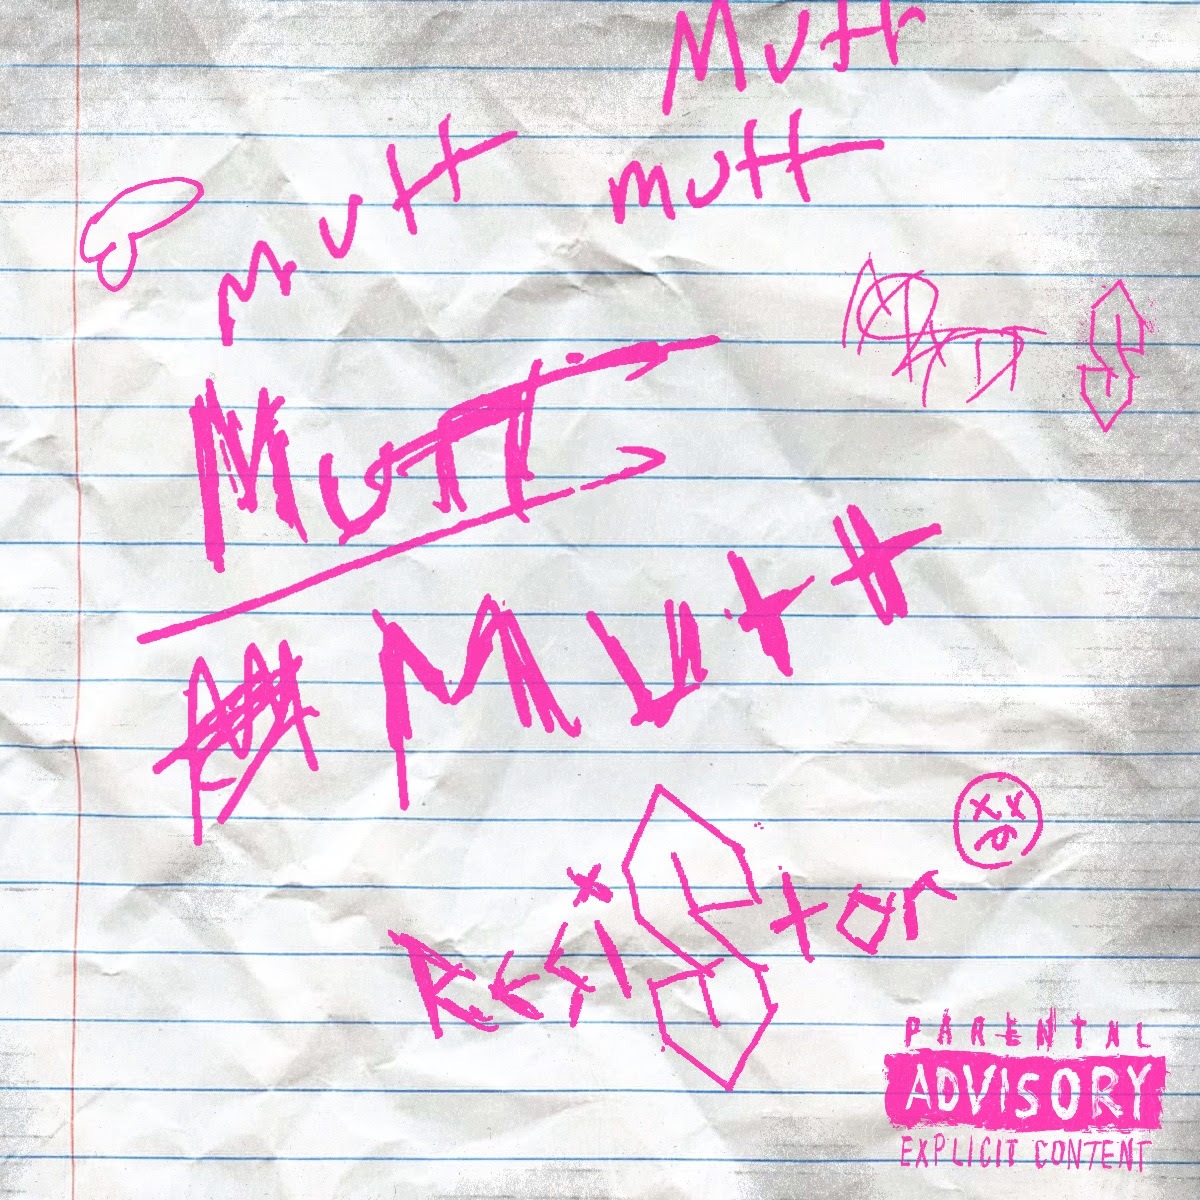 Mutt
mutt
mutt
Mutt
Mutt
Resistor
PARENTAL
ADVISORY
EXPLICIT CONTENT